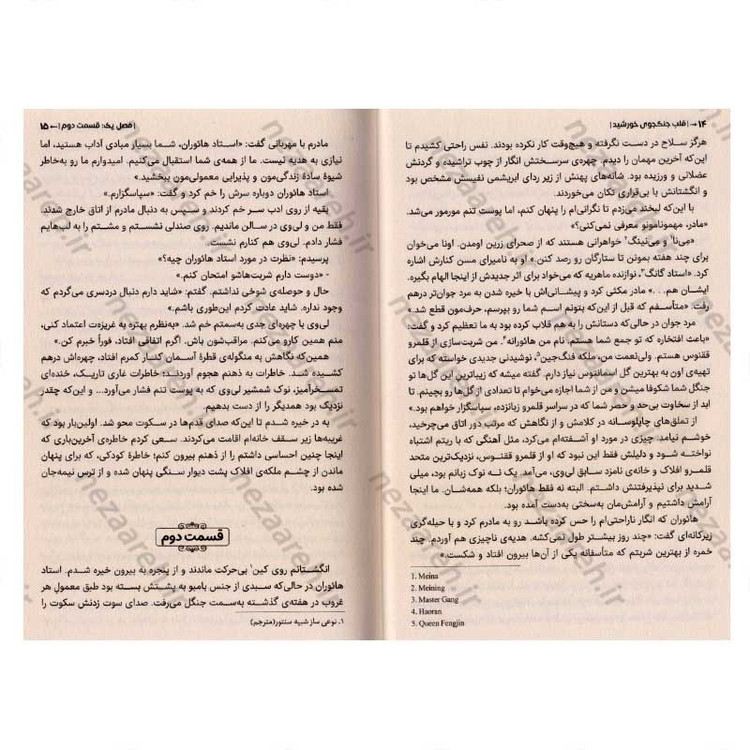 ۱۴ → | قلب جنگجوی خورشید |
هرگز سلاح در دست نگرفته و هیچ‌وقت کار نکرده بودند. نفس راحتی کشیدم تا
این‌که آخرین مهمان را دیدم. چهره‌ی سرسختش انگار از چوب تراشیده و گردنش
عضلانی و ورزیده بود. شانه‌های پهنش از زیر ردای ابریشمی نفیسش مشخص بود
و انگشتانش با بی‌قراری تکان می‌خوردند.
با این‌که لبخند می‌زدم تا نگرانی‌ام را پنهان کنم، اما پوست تنم مورمور می‌شد.
«مادر، مهمونامونو معرفی نمی‌کنی؟»
«می‌نا۱ و می‌نینگ۲ خواهرانی هستند که از صحرای زرین اومدن. اونا می‌خوان
برای چند هفته بمونن تا ستارگان رو رصد کنن.» او به نامیرای مسن کنارش اشاره
کرد. «استاد گانگ۳، نوازنده ماهریه که می‌خواد برای اثر جدیدش از اینجا الهام بگیره.
ایشان هم...» مادر مکثی کرد و پیشانی‌اش با خیره شدن به مرد جوان‌تر درهم
رفت. «متأسفم که قبل از این‌که بتونم اسم شما رو بپرسم، حرف‌مون قطع شد.»
مرد جوان در حالی‌که دستانش را به هم قلاب کرده بود به ما تعظیم کرد و گفت:
«باعث افتخاره که تو جمع شما هستم. نام من هائورانه۴. من شربت‌سازی از قلمرو
ققنوس هستم. ولی‌نعمت من، ملکه فنگ‌جین۵، نوشیدنی جدیدی خواسته که برای
تهیه‌ی اون به بهترین گل اسمانتوس نیاز دارم. گفته میشه که زیباترین این گل‌ها تو
جنگل شما شکوفا میشن و من از شما اجازه می‌خوام تا تعدادی از گل‌ها رو بچینم. تا
ابد از سخاوت بی‌حد و حصر شما که در سراسر قلمرو زبانزده، سپاسگزار خواهم بود.»
از تملق‌های چاپلوسانه در کلامش و از نگاهش که مرتب دور اتاق می‌چرخید،
خوشم نیامد. چیزی در مورد او آشفته‌ام می‌کرد، مثل آهنگی که با ریتم اشتباه
نواخته شود و دلیلش فقط این نبود که او از قلمرو ققنوس، نزدیک‌ترین متحد
قلمرو افلاک و خانه‌ی نامزد سابق لی‌وی، می‌آمد. یک نه نوک زبانم بود، میلی
شدید برای نپذیرفتنش داشتم. البته نه فقط هائوران؛ بلکه همه‌شان. ما اینجا
آرامش داشتیم و آرامش‌مان به‌سختی به‌دست آمده بود.
هائوران که انگار ناراحتی‌ام را حس کرده باشد رو به مادرم کرد و با حیله‌گری
زیرکانه‌ای گفت: «چند روز بیشتر طول نمی‌کشه. هدیه‌ی ناچیزی هم آوردم. چند
خمره از بهترین شربتم که متأسفانه یکی از آن‌ها بیرون افتاد و شکست.»
1. Meina
2. Meining
3. Master Gang
4. Haoran
5. Queen Fengjin
| فصل یک: قسمت دوم | ← ۱۵
مادرم با مهربانی گفت: «استاد هائوران، شما بسیار مبادی آداب هستید، اما
نیازی به هدیه نیست. ما از همه‌ی شما استقبال می‌کنیم. امیدوارم ما رو به‌خاطر
شیوهٔ سادهٔ زندگی‌مون و پذیرایی معمولی‌مون ببخشید.»
استاد هائوران دوباره سرش را خم کرد و گفت: «سپاسگزارم.»
بقیه از روی ادب سر خم کردند و سپس به دنبال مادرم از اتاق خارج شدند.
فقط من و لی‌وی در سالن ماندیم. روی صندلی نشستم و مشتم را به لب‌هایم
فشار دادم. لی‌وی هم کنارم نشست.
پرسیدم: «نظرت در مورد استاد هائوران چیه؟»
- «دوست دارم شربت‌هاشو امتحان کنم.»
حال و حوصله‌ی شوخی نداشتم. گفتم: «شاید دارم دنبال دردسری می‌گردم که
وجود نداره. شاید عادت کردم این‌طوری باشم.»
لی‌وی با چهره‌ای جدی به‌سمتم خم شد. «به‌نظرم بهتره به غریزه‌ت اعتماد کنی،
منم همین کارو می‌کنم. مراقب‌شون باش. اگرم اتفاقی افتاد، فوراً خبرم کن.»
همین‌که نگاهش به منگوله‌ی قطرهٔ آسمان کنار کمرم افتاد، چهره‌اش درهم
کشیده شد. خاطرات به ذهنم هجوم آوردند؛ خاطرات غاری تاریک، خنده‌ای
تمسخرآمیز، نوک شمشیر لی‌وی که به پوست تنم فشار می‌آورد... و این‌که چقدر
نزدیک بود همدیگر را از دست بدهیم.
به در خیره شدم تا این‌که صدای قدم‌ها در سکوت محو شد. اولین‌بار بود که
غریبه‌ها زیر سقف خانه‌ام اقامت می‌کردند. سعی کردم خاطره‌ی آخرین‌باری که
اینجا چنین احساسی داشتم را از ذهنم بیرون کنم؛ خاطرهٔ کودکی، که برای پنهان
ماندن از چشم ملکه‌ی افلاک پشت دیوار سنگی پنهان شده و از ترس نیمه‌جان
شده بود.
قسمت دوم
انگشتانم روی کین۱ بی‌حرکت ماندند و از پنجره به بیرون خیره شدم. استاد
هائوران در حالی‌که سبدی از جنس بامبو به پشتش بسته بود طبق معمولِ هر
غروب در هفته‌ی گذشته به‌سمت جنگل می‌رفت. صدای سوت زدنش سکوت را
۱. نوعی ساز شبیه سنتور(مترجم)
nezaareh.ir